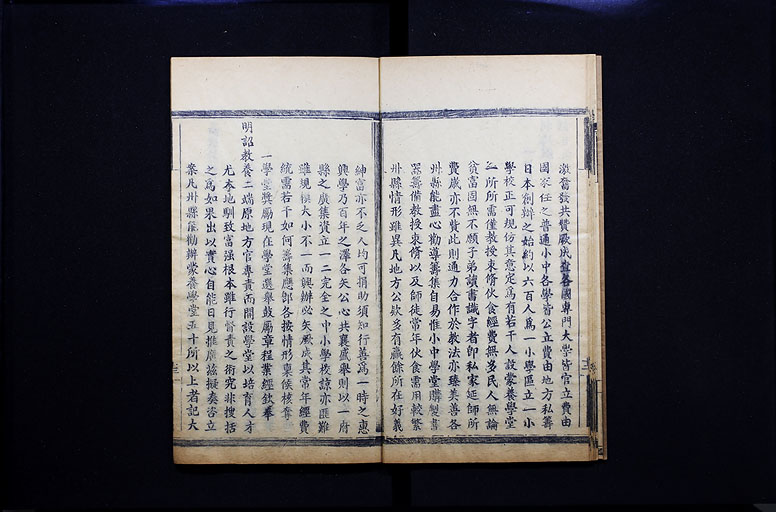 激奮發共贊厥成查各國專門大學皆官立費由
國家任之普通小中各學皆公立費由地方私籌
日本創辦之始約以六百人為一小學區立一小
學校正可規仿其意定為有若干人設蒙養學堂
一所所需僅教授束脩伙食經費無多民人無論
貧富固無不願子弟讀書識字者即私家延師所
費咸亦不貲此則通力合作於教法亦臻美善各
州縣能盡心勸導籌集自易惟小中學堂購製書
器籌備教授束脩以及師徒常年伙食需用較繁
州縣情形雖異凡地方公欵多有贏餘所在好義
紳富亦不乏人均可捐助須知行善為一時之惠
興學乃百年之澤各矢公心共襄盛舉則以一府
縣之廣集資立一二完全之中小學校諒亦匪難
雖規模大小不一而興辦必矢厥成其常年經費
統需若干如何籌集應卽各按情形稟候核奪
一學堂獎勵現在學堂選舉鼓勵章程業經欽奉
明詔教養二端原地方官專責而開設學堂以培育人才
尤本地馴致富强根本雖行督責之術究非搜括
之為如果出以實心自能日見推廣茲擬奏咨立
案凡州縣能勸辦蒙養學堂五十所以上者記大